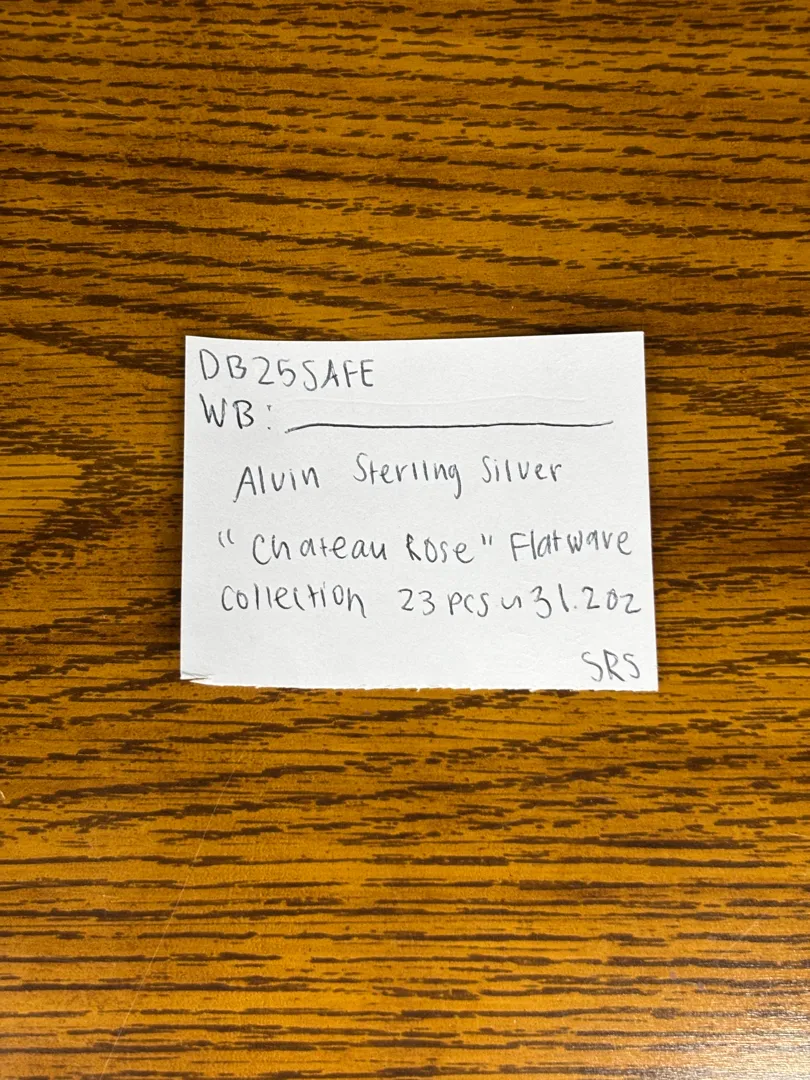 DB25SAFE
WB: ____________
Alvin Sterling Silver
"Chateau Rose" Flatwave
Collection 23 pcs ~ 31.2oz
SRS